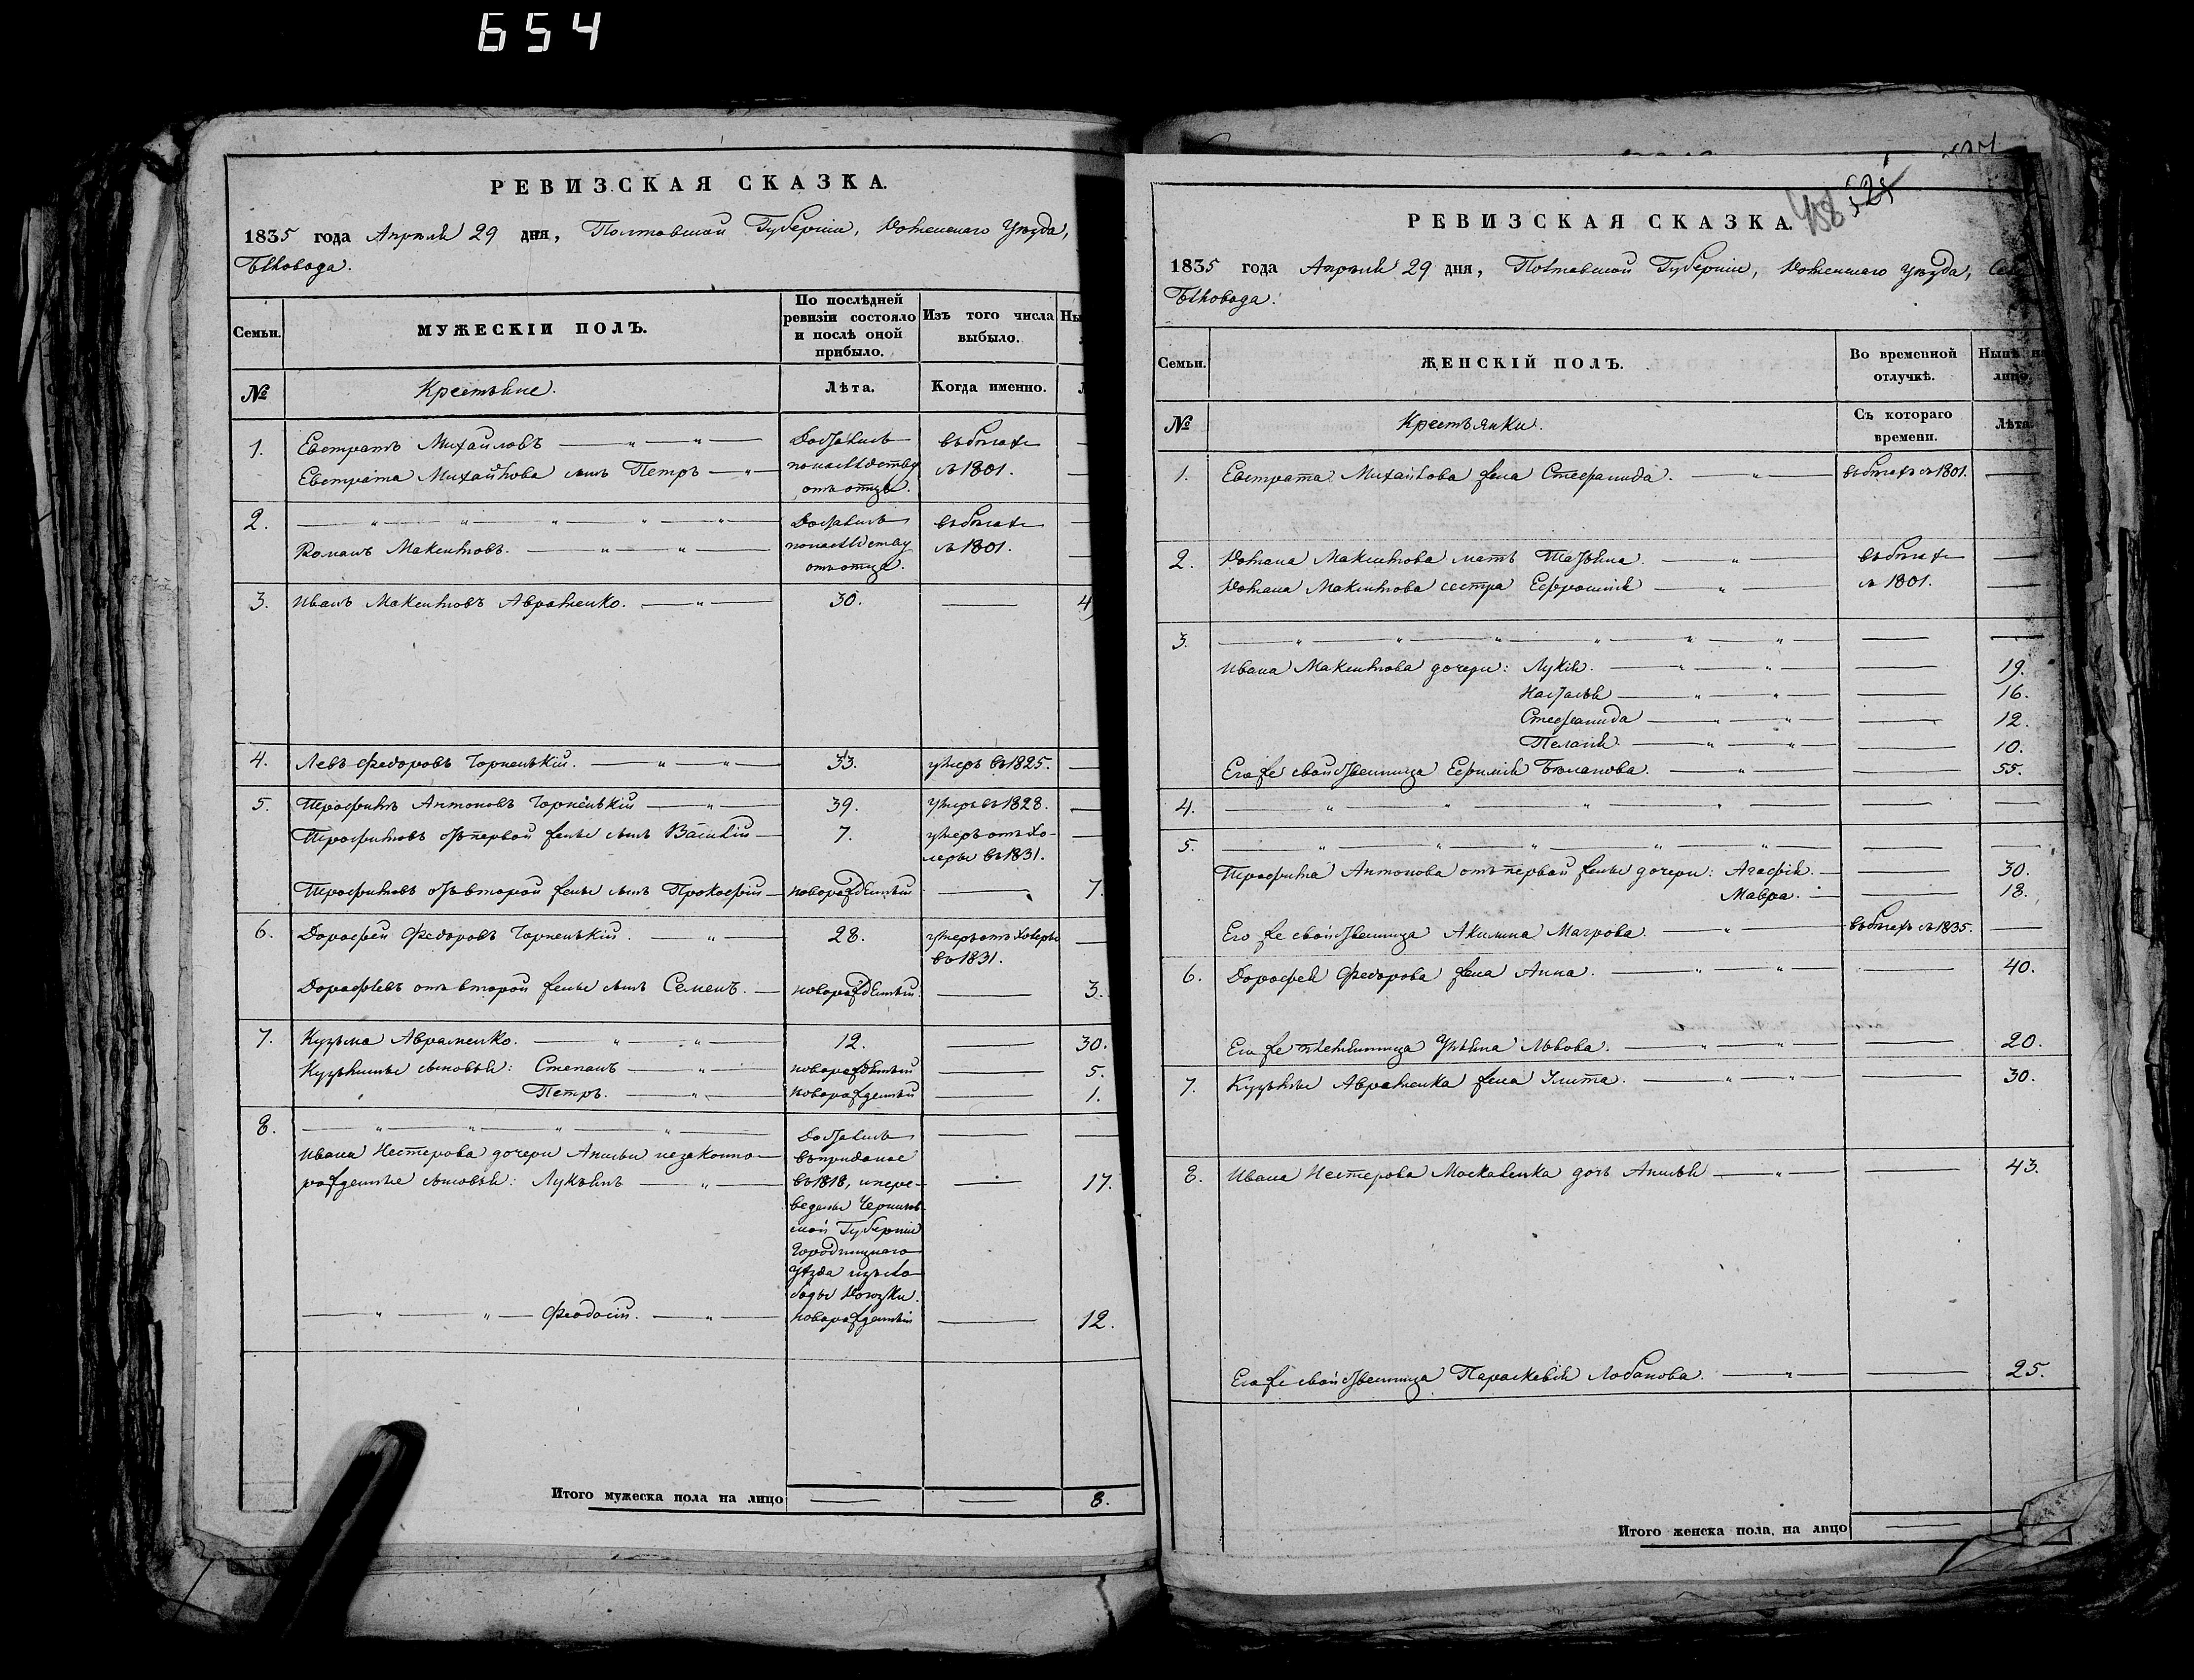 654
РЕВИЗСКАЯ СКАЗКА.
1835 года Апреля 29 дня, Полтавской Губернiи, Роменскаго Уезда,
Бѣловода.
Семьи.
МУЖЕСКIЙ ПОЛЪ.
По послѣдней ревизiи состояло и послѣ оной прибыло.
Изъ того числа выбыло.
Ны
№
Крестьяне.
Лѣта.
Когда именно.
1. Евстратъ Михайловъ
Евстрата Михайлова сынъ Петръ
Достались по наслѣдству отъ отца.
въ бѣгахъ съ 1801.
2.
Романъ Максимовъ.
Достались по наслѣдству отъ отца.
въ бѣгахъ съ 1801.
3. Иванъ Максимовъ Авраменко. 30. 4
4. Левъ Федоровъ 33. умеръ въ 1825.
5. Трофимъ Антоновъ 39. умеръ въ 1828.
Трофимовъ отъ первой жены сынъ Василiй 7. умеръ отъ холеры въ 1831.
Трофимовъ отъ второй жены сынъ Прокофiй новорожденный 7.
6. Дорофей Федоровъ 28. умеръ отъ холеры въ 1831.
Дорофѣевъ отъ второй жены сынъ Семенъ. новорожденный 3.
7. Кузьма Авраменко. 12. 30.
Кузьмины сыновья: Степанъ новорожденный 5.
Петръ. новорожденный 1.
8.
Ивана Нестерова дочери Анисьи незаконно-
рожденные сыновья: Лукьянъ 17.
Достались
въ приданое
въ 1818, и пере-
ведены Чернигов-
ской Губернiи
Городницкаго
Уѣзда изъ сло-
боды
Феодосiй. новорожденный 12.
Итого мужеска пола на лицо 8.
458 525
РЕВИЗСКАЯ СКАЗКА.
1835 года Апреля 29 дня, Полтавской Губернiи, Роменскаго уезда,
Бѣловода.
Семьи.
ЖЕНСКIЙ ПОЛЪ.
Во временной отлучкѣ.
Нынѣ на лицо.
№
Крестьянки.
Съ котораго времени.
Лѣта.
1. Евстрата Михайлова жена Стефанида. въ бѣгахъ съ 1801.
2. Романа Максимова мать Татьяна. въ бѣгахъ
Романа Максимова сестра Ефросинiя съ 1801.
3.
Ивана Максимова дочери: Лукiя. 19.
Наталья 16.
Стефанида 12.
Пелагiя. 10.
Его же свойственница Ефимiя 55.
4.
5.
Трофима Антонова отъ первой жены дочери: Агафiя. 30.
Мавра. 18.
Его же свойственница Акилина въ бѣгахъ съ 1835.
6. Дорофея Федорова жена Анна. 40.
Его же племянница Ульяна Львова. 20.
7. Кузьмы Авраменка жена Улита. 30.
8. Ивана Нестерова Москаленка дочь Анисья 43.
Его же свойственница Параскевiя Лобанова. 25.
Итого женска пола на лицо